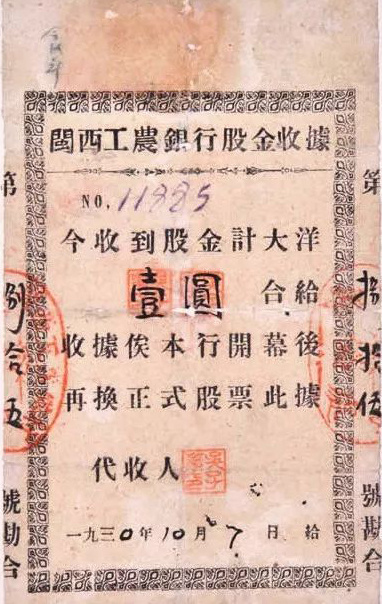 閩西工農銀行股金收據
NO. 11885
今收到股金計大洋
壹圓 合給
收據俟本行開幕後
再換正式股票此據
代收人
一九三0年10月7日給
第
五
號勘合
第
號勘合